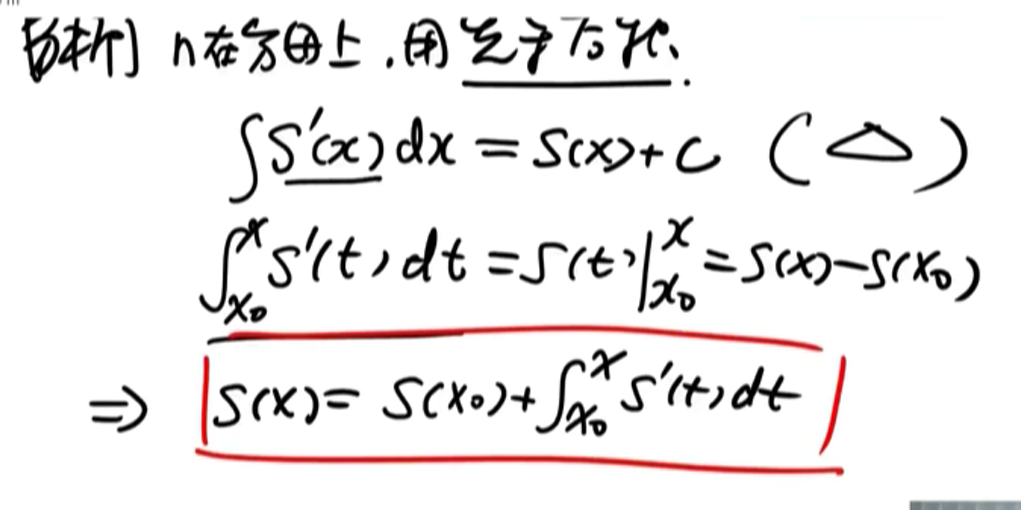 [分析] n在分母上,用先导后积.
∫S'(x)dx = S(x)+C (△)
∫_{x₀}^{x} S'(t)dt = S(t)|_{x₀}^{x} = S(x)-S(x₀)
⇒ S(x) = S(x₀)+∫_{x₀}^{x} S'(t)dt